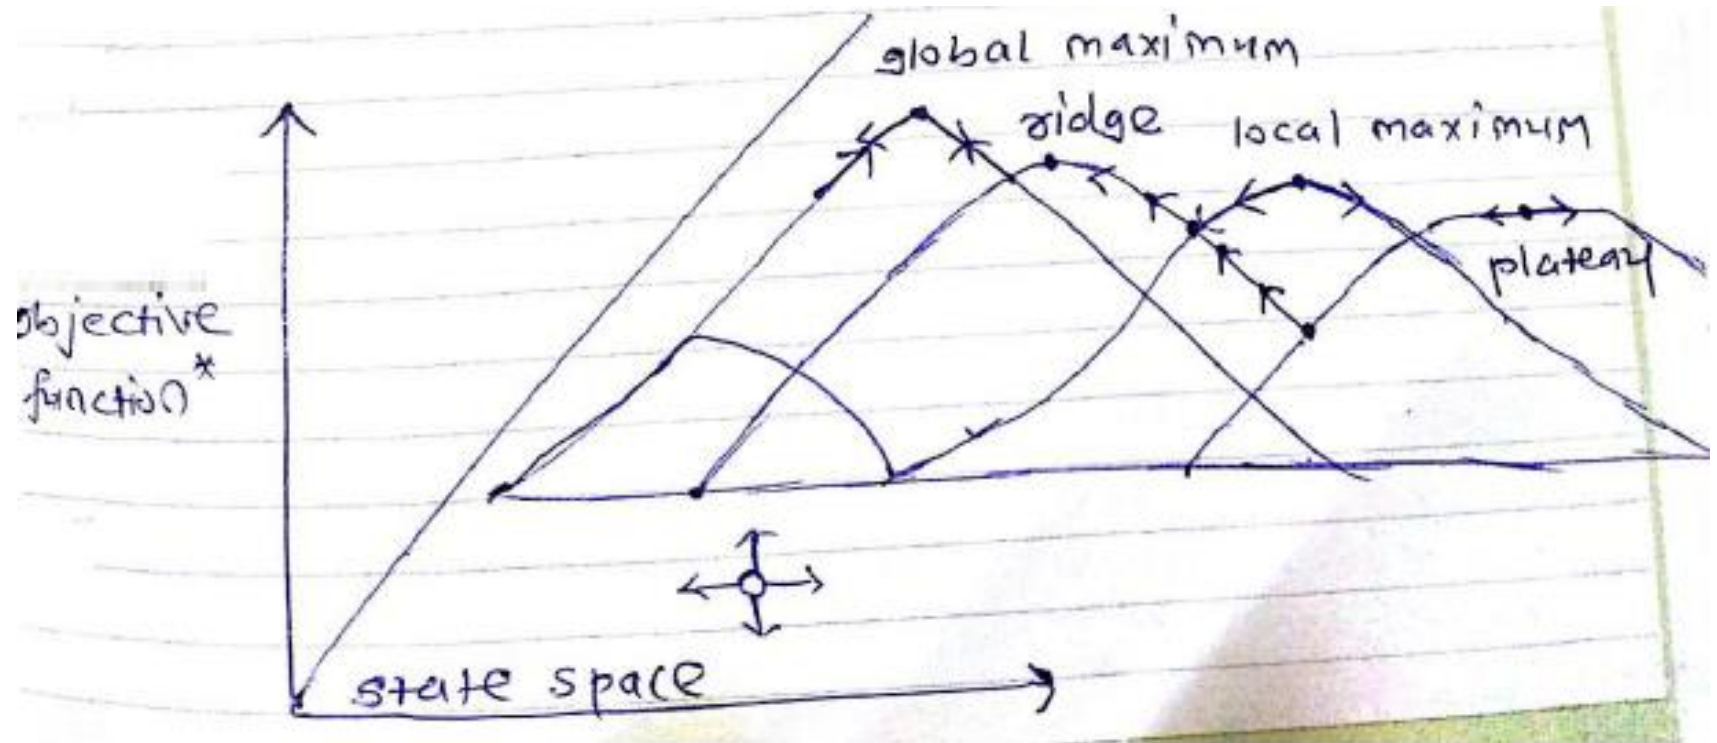 global maximum
ridge
local maximum
plateau
objective
function*
state space